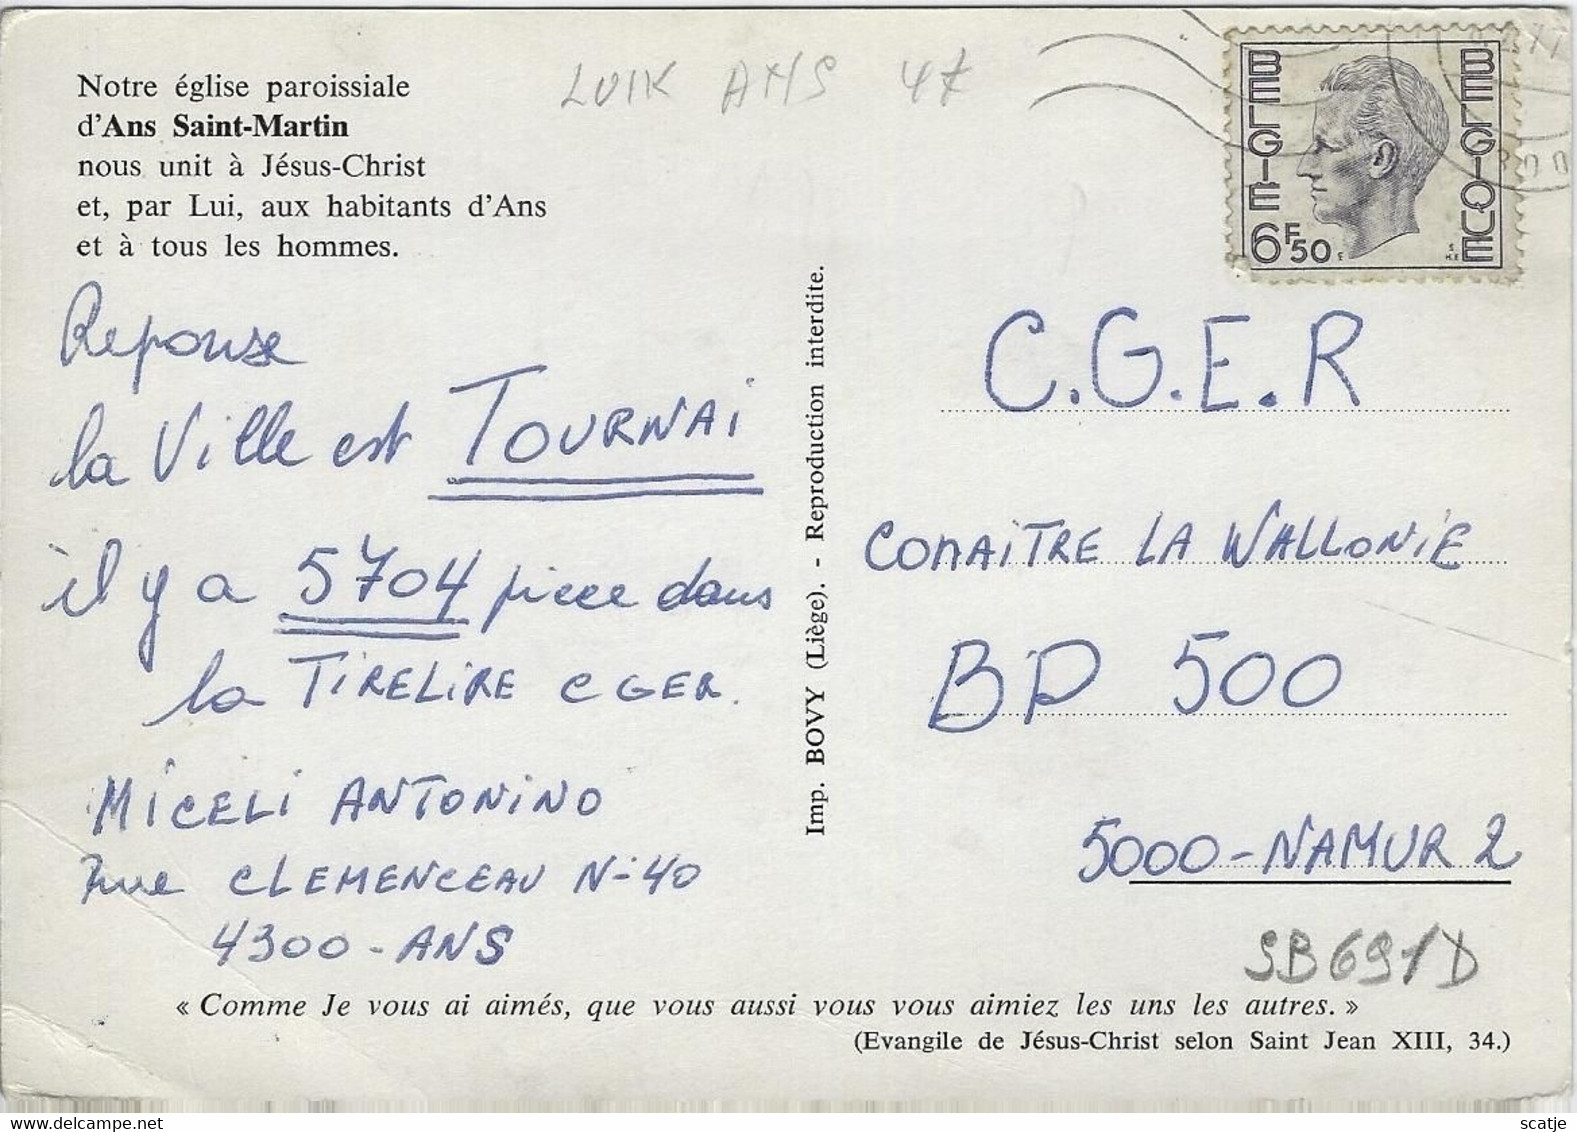 Notre église paroissiale
d'Ans Saint-Martin
nous unit à Jésus-Christ
et, par Lui, aux habitants d'Ans
et à tous les hommes.
LUIK ANS 4x
BELGIE
BELGIQUE
6F50
Reponse
la Ville est TOURNAI
il y a 5704 piece dans
la TIRELIRE CGER.
MICELI ANTONINO
Rue CLEMENCEAU N-40
4300-ANS
Imp. BOVY (Liège). - Reproduction interdite.
C.G.E.R
CONAITRE LA WALLONIE
BP 500
5000-NAMUR 2
SB691D
« Comme Je vous ai aimés, que vous aussi vous vous aimiez les uns les autres. »
(Evangile de Jésus-Christ selon Saint Jean XIII, 34.)
www.delcampe.net
scatje